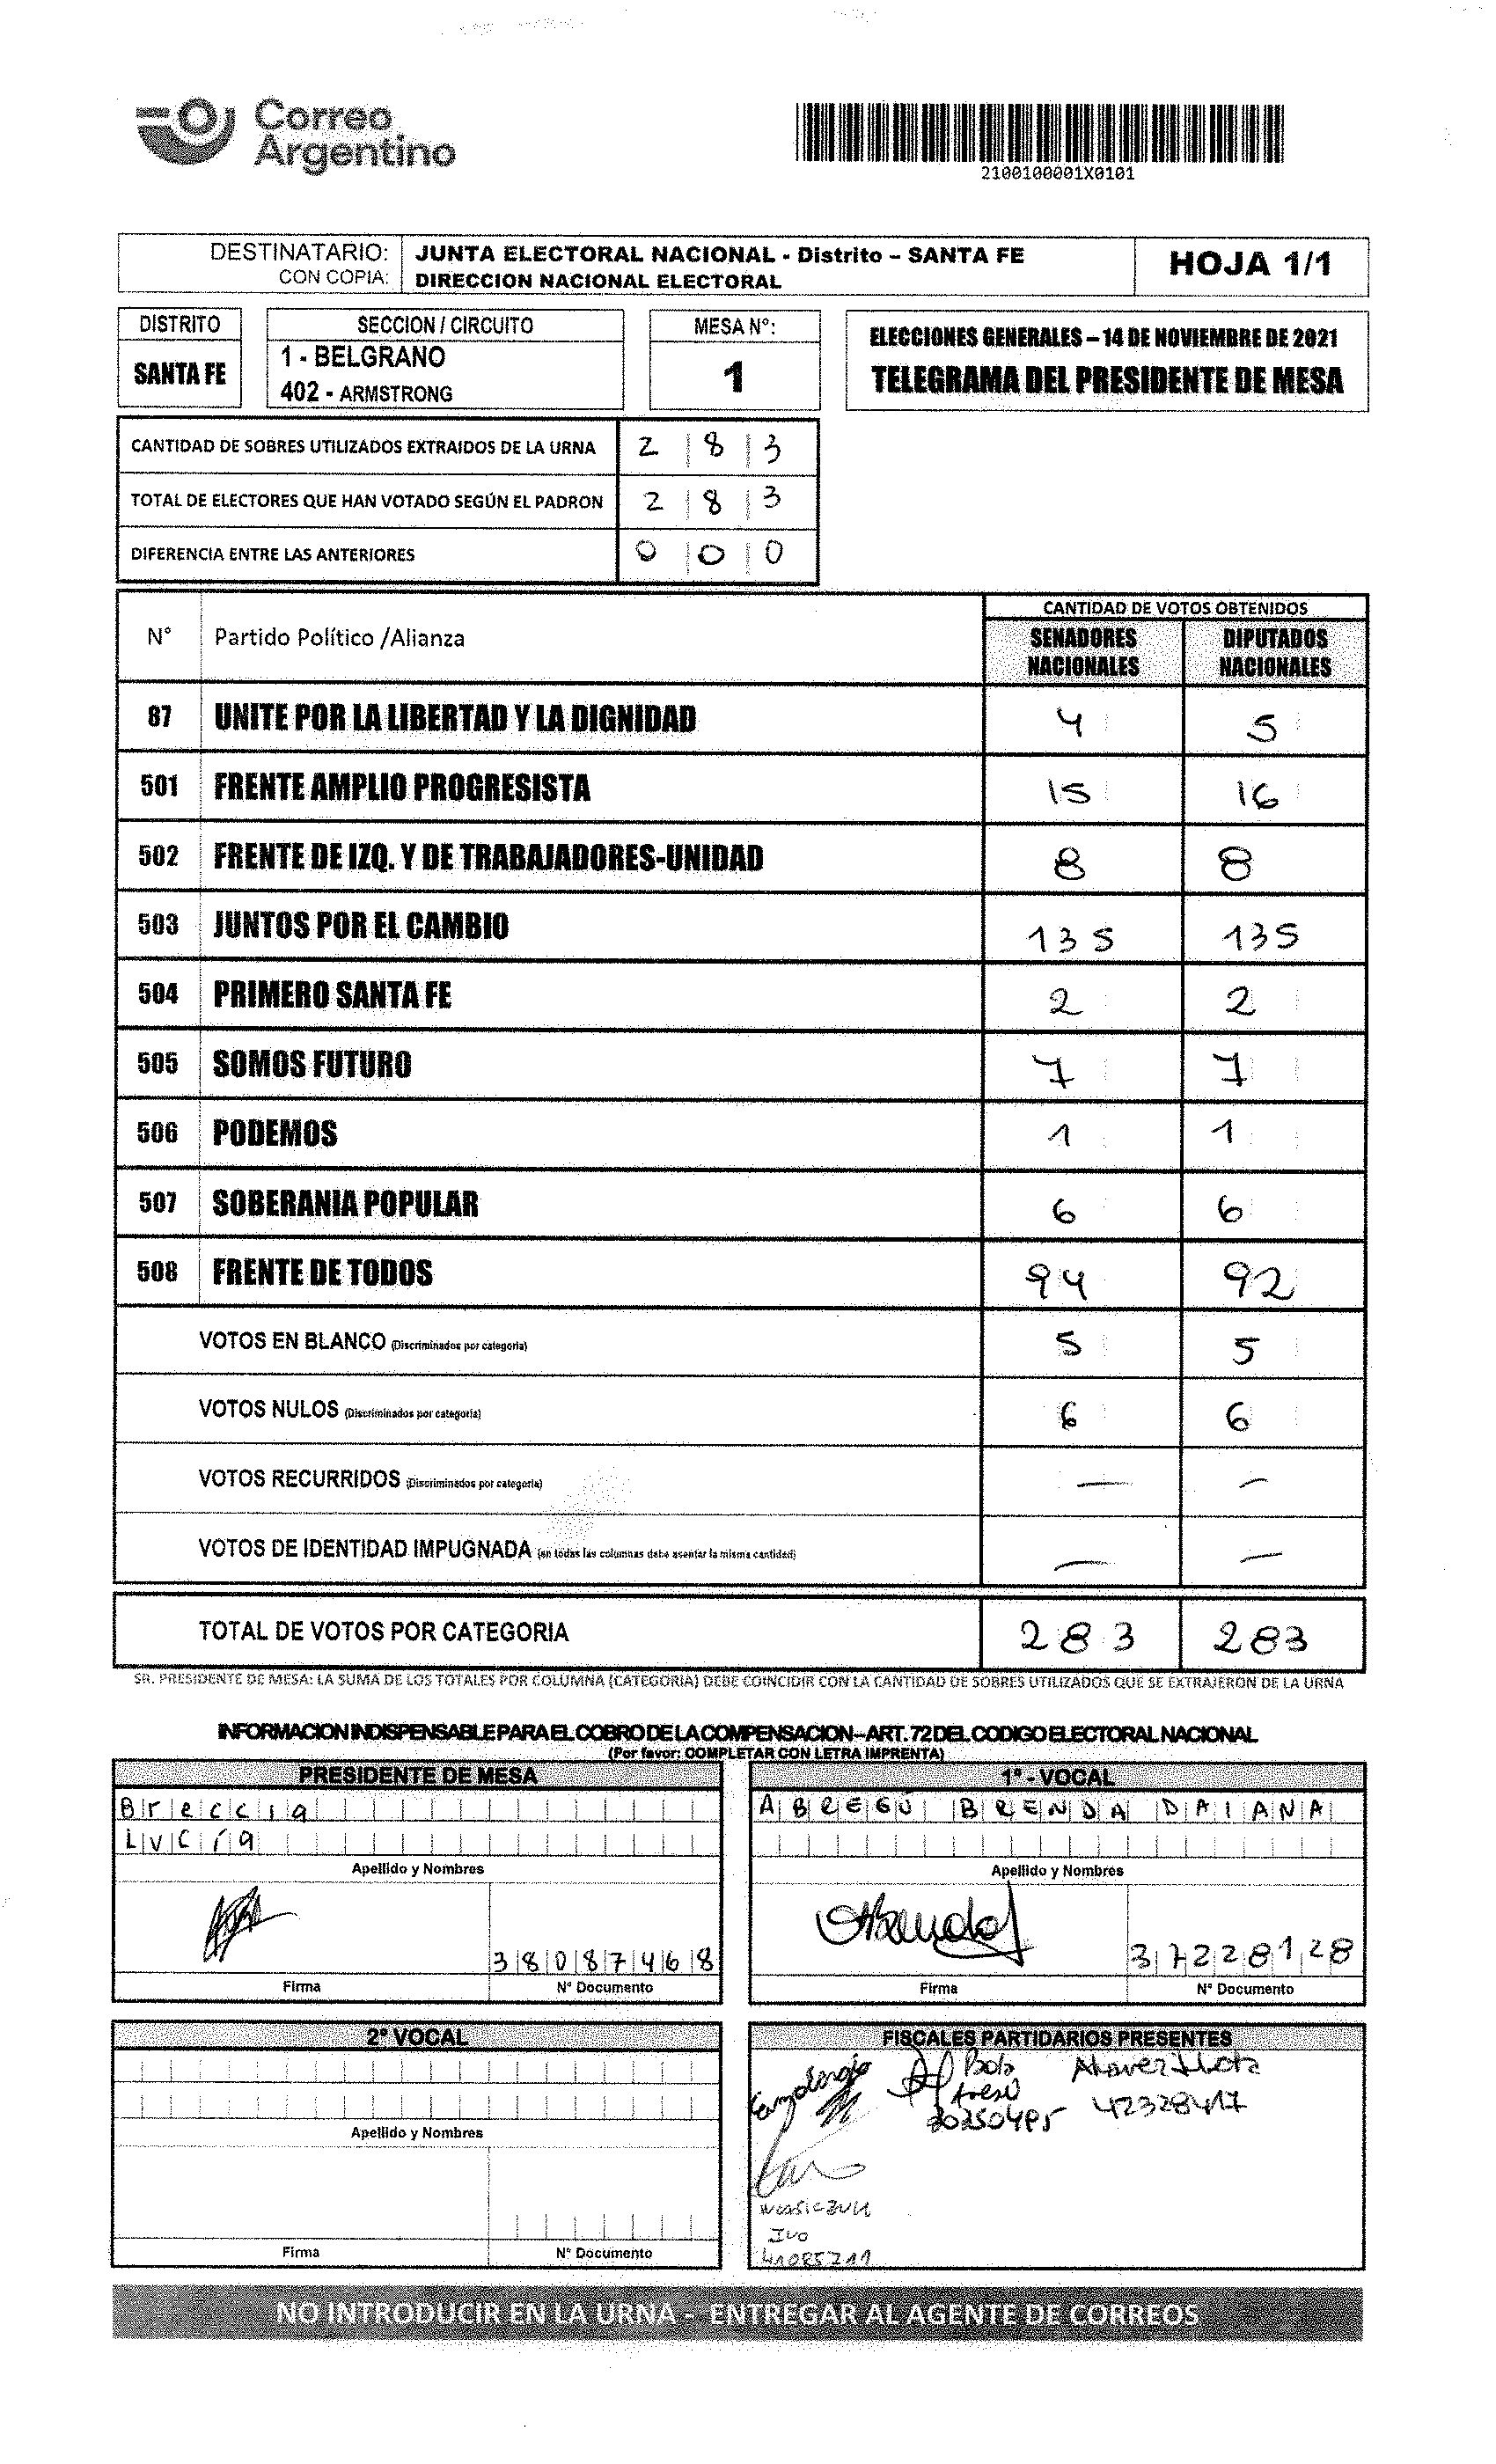 Correo
Argentino
2100100001X0101
DESTINATARIO: JUNTA ELECTORAL NACIONAL - Distrito – SANTA FE HOJA 1/1
CON COPIA: DIRECCION NACIONAL ELECTORAL
DISTRITO SECCION / CIRCUITO MESA N°:
SANTA FE 1 - BELGRANO 1
402 - ARMSTRONG
ELECCIONES GENERALES – 14 DE NOVIEMBRE DE 2021
TELEGRAMA DEL PRESIDENTE DE MESA
CANTIDAD DE SOBRES UTILIZADOS EXTRAIDOS DE LA URNA 2 8 3
TOTAL DE ELECTORES QUE HAN VOTADO SEGÚN EL PADRON 2 8 3
DIFERENCIA ENTRE LAS ANTERIORES 0 0 0
CANTIDAD DE VOTOS OBTENIDOS
N° Partido Político /Alianza SENADORES NACIONALES DIPUTADOS NACIONALES
87 UNITE POR LA LIBERTAD Y LA DIGNIDAD 4 5
501 FRENTE AMPLIO PROGRESISTA 15 16
502 FRENTE DE IZQ. Y DE TRABAJADORES-UNIDAD 8 8
503 JUNTOS POR EL CAMBIO 135 135
504 PRIMERO SANTA FE 2 2
505 SOMOS FUTURO 7 7
506 PODEMOS 1 1
507 SOBERANIA POPULAR 6 6
508 FRENTE DE TODOS 94 92
VOTOS EN BLANCO (Discriminados por categoria) 5 5
VOTOS NULOS (Discriminados por categoria) 6 6
VOTOS RECURRIDOS (Discriminados por categoria) — —
VOTOS DE IDENTIDAD IMPUGNADA (en todas las columnas debe asentar la misma cantidad) — —
TOTAL DE VOTOS POR CATEGORIA 283 283
SR. PRESIDENTE DE MESA: LA SUMA DE LOS TOTALES POR COLUMNA (CATEGORIA) DEBE COINCIDIR CON LA CANTIDAD DE SOBRES UTILIZADOS QUE SE EXTRAJERON DE LA URNA
INFORMACION INDISPENSABLE PARA EL COBRO DE LA COMPENSACION – ART. 72 DEL CODIGO ELECTORAL NACIONAL
(Por favor: COMPLETAR CON LETRA IMPRENTA)
PRESIDENTE DE MESA
Breccia
Lucía
Apellido y Nombres
38087468
Firma N° Documento
1° - VOCAL
ABREGÚ BRENDA DAIANA
Apellido y Nombres
37228128
Firma N° Documento
2° VOCAL
Apellido y Nombres
Firma N° Documento
FISCALES PARTIDARIOS PRESENTES
42328417
Ivo
NO INTRODUCIR EN LA URNA - ENTREGAR AL AGENTE DE CORREOS